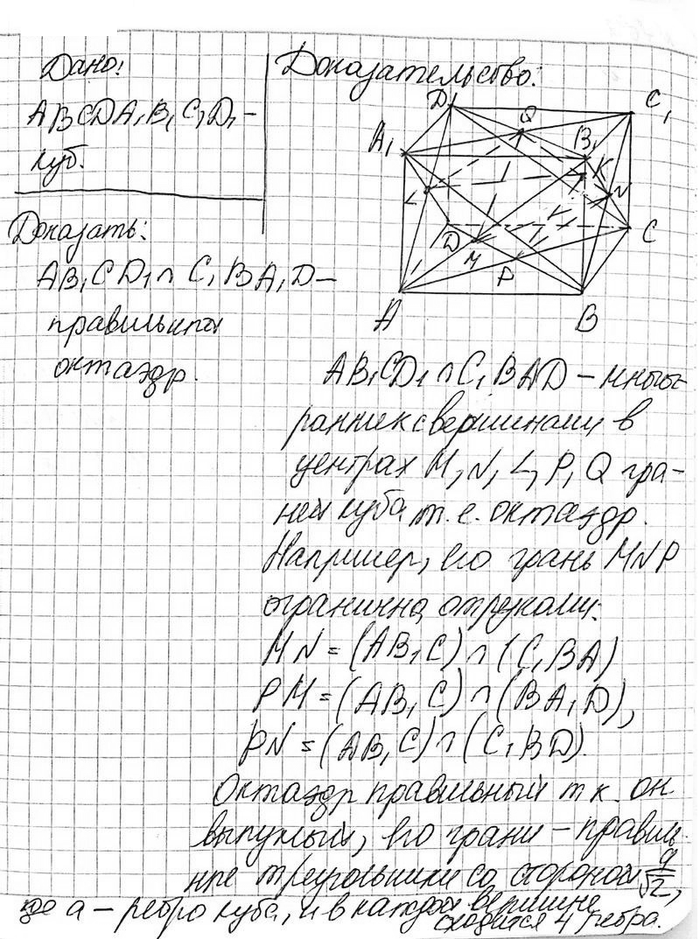 Дано:
ABCDA₁B₁C₁D₁ –
куб.
Доказать:
AB₁CD₁ ∩ C₁BA₁D –
правильный
октаэдр.
Доказательство:
D₁
Q
C₁
A₁
B₁
K
L
N
D
M
C
P
A
B
AB₁CD₁ ∩ C₁BAD – много-
ранник с вершинами в
центрах M, N, L, P, Q гра-
ней куба т.е. октаэдр.
Например, его грань MNP
ограничена отрезками:
MN = (AB₁C) ∩ (C₁BA)
PM = (AB₁C) ∩ (BA₁D),
PN = (AB₁C) ∩ (C₁BD).
Октаэдр правильный т.к. он
выпуклый, его грани – правиль-
ные треугольники со стороной a/√2,
где a – ребро куба, и в каждой вершине
сходится 4 ребра.